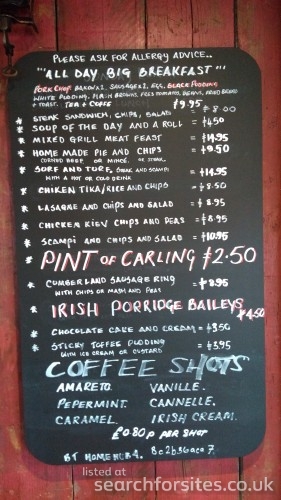 PLEASE ASK FOR ALLERGY ADVICE..
"ALL DAY BIG BREAKFAST"
PORK CHOP, BACONX2, SAUSAGEX2, EGG, BLACK PUDDING
WHITE PUDDING, HASH BROWNS, FRIED TOMATO, BEANS, FRIED BREAD
+ TOAST. TEA + COFFE £9.95
* STEAK SANDWICH, CHIPS, SALAD = £8.00
* SOUP OF THE DAY AND A ROLL = £4.50
* MIXED GRILL MEAT FEAST = £14.95
* HOME MADE PIE AND CHIPS = £9.50
CORNED BEEF OR MINCE. OR STEAK.
* SURF AND TURF, STEAK AND SCAMPI = £14.95
WITH A HOT OR COLD DRINK
* CHIKEN TIKA/RICE AND CHIPS = £8.50
* LASAGNE AND CHIPS AND SALAD = £8.95
* CHICKEN KIEV CHIPS AND PEAS = £8.95
* SCAMPI AND CHIPS AND SALAD = £10.95
* PINT OF CARLING £2.50
* CUMBERLAND SAUSAGE RING = £8.95
WITH CHIPS OR MASH AND PEAS
* IRISH PORRIDGE BAILEYS £4.50
* CHOCOLATE CAKE AND CREAM = £3.50
* STICKY TOFFEE PUDDING = £3.95
WITH ICE CREAM OR CUSTARD
COFFEE SHOTS
AMARETO. VANILLE.
PEPERMINT. CANNELLE.
CARAMEL. IRISH CREAM.
£0.80p PER SHOT
BT HOMEHUB4.
listed at
searchforsites.co.uk